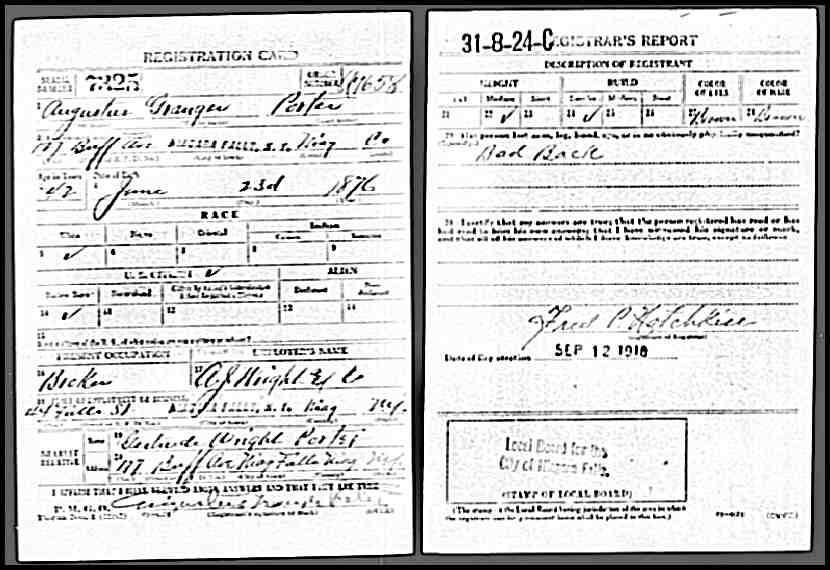 REGISTRATION CARD
SERIAL NUMBER
ORDER NUMBER
Augustus Granger Porter
Buff Av NIAGARA FALLS, N.Y. Niag Co
Age in Years
Date of Birth
42 June 23d 1876
RACE
White Negro Oriental Indian
5 ✓ 6 7 8 9
U. S. CITIZEN ✓ ALIEN
Native Born Naturalized
10 ✓ 12 13 14
15
PRESENT OCCUPATION EMPLOYER'S NAME
16 Broker 17 A.J. Wright & Co
Falls St NIAGARA FALLS, N.Y. Niag N.Y.
NEAREST RELATIVE
Name 19 Gertrude Wright Porter
Address 20 Buff Av Niag Falls Niag N.Y.
I AFFIRM THAT I HAVE VERIFIED ABOVE ANSWERS AND THAT THEY ARE TRUE
P. M. G. O.
Augustus Granger Porter
31-8-24-C REGISTRAR'S REPORT
DESCRIPTION OF REGISTRANT
HEIGHT BUILD COLOR OF EYES COLOR OF HAIR
Tall Medium Short Slender Medium Stout
21 22 ✓ 23 24 ✓ 25 26 27 Brown 28 Brown
29 Has person lost arm, leg, hand, eye, or is he obviously physically disqualified?
(Specify.)
Bad Back
30 I certify that my answers are true; that the person registered has read or has
had read to him his own answers; that I have witnessed his signature or mark,
and that all of his answers of which I have knowledge are true, except as follows:
Fred P. Hotchkiss
(Signature of Registrar)
Date of Registration SEP 12 1918
Local Board for the
City of Niagara Falls
(STAMP OF LOCAL BOARD)
(The stamp of the Local Board having jurisdiction of the area in which
the registrant has his permanent home shall be placed in this box.)